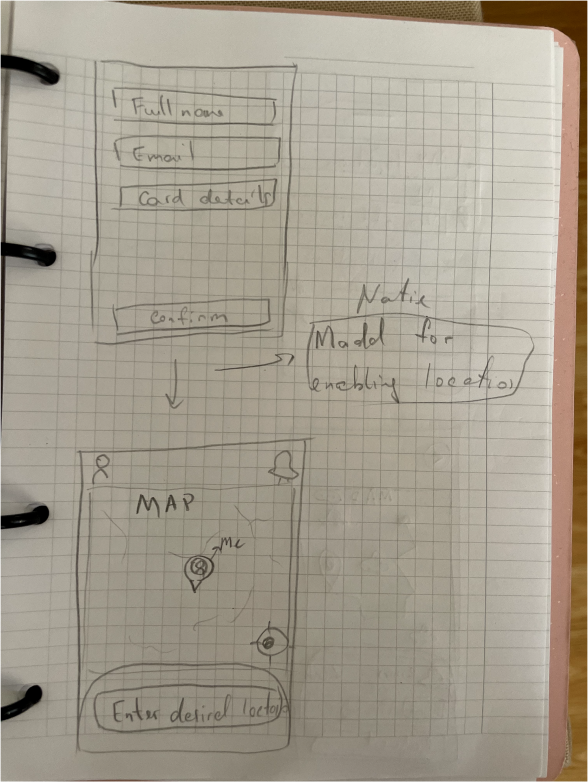 Full name
Email
Card details
Confirm
Natie
Madd for
enabling location
MAP
Me
Enter desired locatio